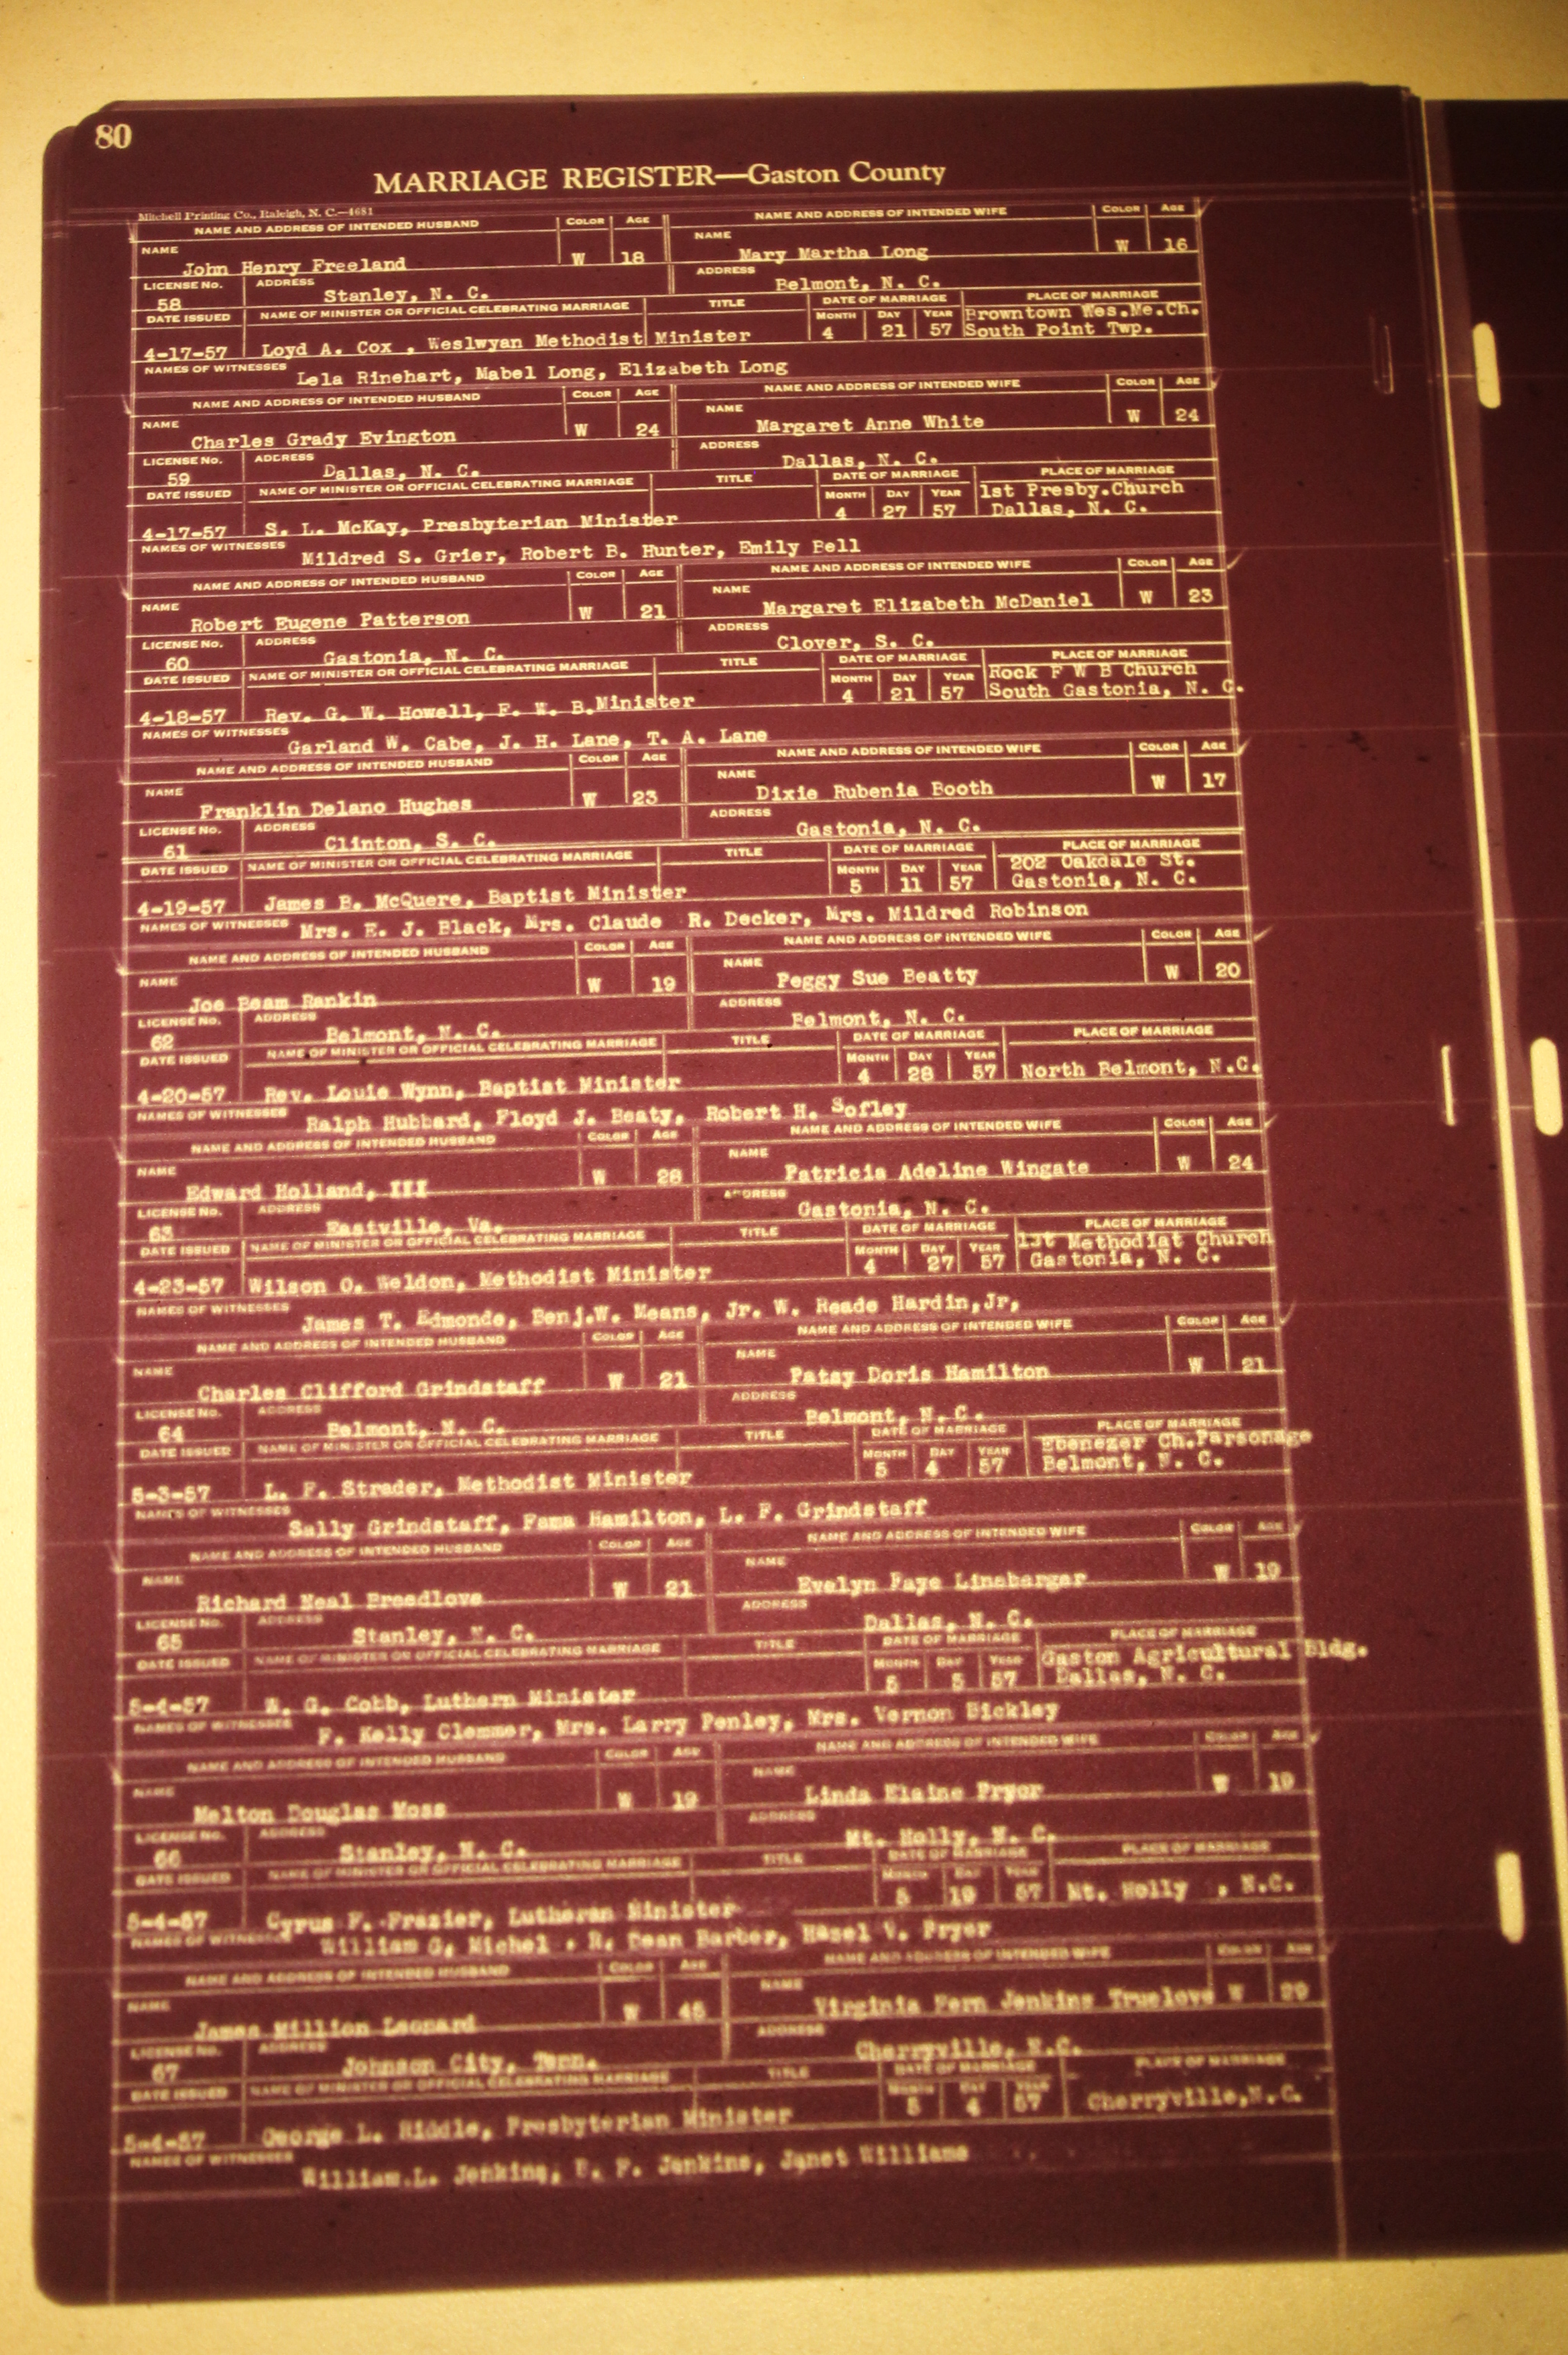 80
MARRIAGE REGISTER—Gaston County
Mitchell Printing Co., Raleigh, N. C.—4681
NAME AND ADDRESS OF INTENDED HUSBAND COLOR AGE NAME AND ADDRESS OF INTENDED WIFE COLOR AGE
NAME John Henry Freeland W 18 NAME Mary Martha Long W 16
LICENSE No. 58 ADDRESS Stanley, N. C. ADDRESS Belmont, N. C.
DATE ISSUED NAME OF MINISTER OR OFFICIAL CELEBRATING MARRIAGE TITLE DATE OF MARRIAGE PLACE OF MARRIAGE
MONTH DAY YEAR Browntown Wes.Me.Ch.
4-17-57 Loyd A. Cox , Weslwyan Methodist Minister 4 21 57 South Point Twp.
NAMES OF WITNESSES Lela Rinehart, Mabel Long, Elizabeth Long
NAME AND ADDRESS OF INTENDED HUSBAND COLOR AGE NAME AND ADDRESS OF INTENDED WIFE COLOR AGE
NAME Charles Grady Evington W 24 NAME Margaret Anne White W 24
LICENSE No. 59 ADDRESS Dallas, N. C. ADDRESS Dallas, N. C.
DATE ISSUED NAME OF MINISTER OR OFFICIAL CELEBRATING MARRIAGE TITLE DATE OF MARRIAGE PLACE OF MARRIAGE
MONTH DAY YEAR 1st Presby.Church
4-17-57 S. L. McKay, Presbyterian Minister 4 27 57 Dallas, N. C.
NAMES OF WITNESSES Mildred S. Grier, Robert B. Hunter, Emily Bell
NAME AND ADDRESS OF INTENDED HUSBAND COLOR AGE NAME AND ADDRESS OF INTENDED WIFE COLOR AGE
NAME Robert Eugene Patterson W 21 NAME Margaret Elizabeth McDaniel W 23
LICENSE No. 60 ADDRESS Gastonia, N. C. ADDRESS Clover, S. C.
DATE ISSUED NAME OF MINISTER OR OFFICIAL CELEBRATING MARRIAGE TITLE DATE OF MARRIAGE PLACE OF MARRIAGE
MONTH DAY YEAR Rock F W B Church
4-18-57 Rev. G. W. Howell, F. W. B.Minister 4 21 57 South Gastonia, N. C.
NAMES OF WITNESSES Garland W. Cabe, J. H. Lane, T. A. Lane
NAME AND ADDRESS OF INTENDED HUSBAND COLOR AGE NAME AND ADDRESS OF INTENDED WIFE COLOR AGE
NAME Franklin Delano Hughes W 23 NAME Dixie Rubenia Booth W 17
LICENSE No. 61 ADDRESS Clinton, S. C. ADDRESS Gastonia, N. C.
DATE ISSUED NAME OF MINISTER OR OFFICIAL CELEBRATING MARRIAGE TITLE DATE OF MARRIAGE PLACE OF MARRIAGE
MONTH DAY YEAR 202 Oakdale St.
4-19-57 James B. McQuere, Baptist Minister 5 11 57 Gastonia, N. C.
NAMES OF WITNESSES Mrs. E. J. Black, Mrs. Claude R. Decker, Mrs. Mildred Robinson
NAME AND ADDRESS OF INTENDED HUSBAND COLOR AGE NAME AND ADDRESS OF INTENDED WIFE COLOR AGE
NAME Joe Beam Rankin W 19 NAME Peggy Sue Beatty W 20
LICENSE No. 62 ADDRESS Belmont, N. C. ADDRESS Belmont, N. C.
DATE ISSUED NAME OF MINISTER OR OFFICIAL CELEBRATING MARRIAGE TITLE DATE OF MARRIAGE PLACE OF MARRIAGE
MONTH DAY YEAR
4-20-57 Rev. Louie Wynn, Baptist Minister 4 28 57 North Belmont, N.C.
NAMES OF WITNESSES Ralph Hubbard, Floyd J. Beaty, Robert H. Sofley
NAME AND ADDRESS OF INTENDED HUSBAND COLOR AGE NAME AND ADDRESS OF INTENDED WIFE COLOR AGE
NAME Edward Holland, III W 28 NAME Patricia Adeline Wingate W 24
LICENSE No. 63 ADDRESS Eastville, Va. ADDRESS Gastonia, N. C.
DATE ISSUED NAME OF MINISTER OR OFFICIAL CELEBRATING MARRIAGE TITLE DATE OF MARRIAGE PLACE OF MARRIAGE
MONTH DAY YEAR 1st Methodiat Church
4-23-57 Wilson O. Weldon, Methodist Minister 4 27 57 Gastonia, N. C.
NAMES OF WITNESSES James T. Edmonde, Benj.W. Means, Jr. W. Reade Hardin,Jr,
NAME AND ADDRESS OF INTENDED HUSBAND COLOR AGE NAME AND ADDRESS OF INTENDED WIFE COLOR AGE
NAME Charles Clifford Grindstaff W 21 NAME Patsy Doris Hamilton W 21
LICENSE No. 64 ADDRESS Belmont, N. C. ADDRESS Belmont, N. C.
DATE ISSUED NAME OF MINISTER OR OFFICIAL CELEBRATING MARRIAGE TITLE DATE OF MARRIAGE PLACE OF MARRIAGE
MONTH DAY YEAR Ebenezer Ch.Parsonage
5-3-57 L. F. Strader, Methodist Minister 5 4 57 Belmont, N. C.
NAMES OF WITNESSES Sally Grindstaff, Fama Hamilton, L. F. Grindstaff
NAME AND ADDRESS OF INTENDED HUSBAND COLOR AGE NAME AND ADDRESS OF INTENDED WIFE COLOR AGE
NAME Richard Neal Breedlove W 21 NAME Evelyn Faye Lineberger W 19
LICENSE No. 65 ADDRESS Stanley, N. C. ADDRESS Dallas, N. C.
DATE ISSUED NAME OF MINISTER OR OFFICIAL CELEBRATING MARRIAGE TITLE DATE OF MARRIAGE PLACE OF MARRIAGE
MONTH DAY YEAR Gaston Agricultural Bldg.
5-4-57 G. Cobb, Luthern Minister 5 5 57 Dallas, N. C.
NAMES OF WITNESSES F. Kelly Clemmer, Mrs. Larry Penley, Mrs. Vernon Bickley
NAME AND ADDRESS OF INTENDED HUSBAND COLOR AGE NAME AND ADDRESS OF INTENDED WIFE COLOR AGE
NAME Melton Douglas Moss W 19 NAME Linda Elaine Pryor W 19
LICENSE No. 66 ADDRESS Stanley, N. C. ADDRESS Mt. Holly, N. C.
DATE ISSUED NAME OF MINISTER OR OFFICIAL CELEBRATING MARRIAGE TITLE DATE OF MARRIAGE PLACE OF MARRIAGE
MONTH DAY YEAR
5-4-57 Cyrus F. Frazier, Lutheran Minister 5 19 57 Mt. Holly , N.C.
NAMES OF WITNESSES William G. Michel . R. Dean Barber, Hazel V. Pryer
NAME AND ADDRESS OF INTENDED HUSBAND COLOR AGE NAME AND ADDRESS OF INTENDED WIFE COLOR AGE
NAME James Million Leonard W 45 NAME Virginia Fern Jenkins Truelove W 29
LICENSE No. 67 ADDRESS Johnson City, Tenn. ADDRESS Cherryville, N.C.
DATE ISSUED NAME OF MINISTER OR OFFICIAL CELEBRATING MARRIAGE TITLE DATE OF MARRIAGE PLACE OF MARRIAGE
MONTH DAY YEAR
5-4-57 George L. Riddle, Presbyterian Minister 5 4 57 Cherryville,N.C.
NAMES OF WITNESSES William.L. Jenkins, F. Jenkins, Janet Williams